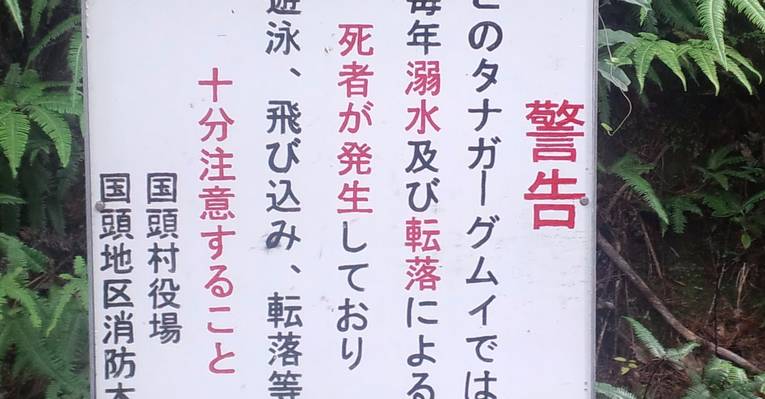 警告
このタナガーグムイでは
毎年溺水及び転落による
死者が発生しており
遊泳、飛び込み、転落等
十分注意すること
国頭村役場
国頭地区消防本